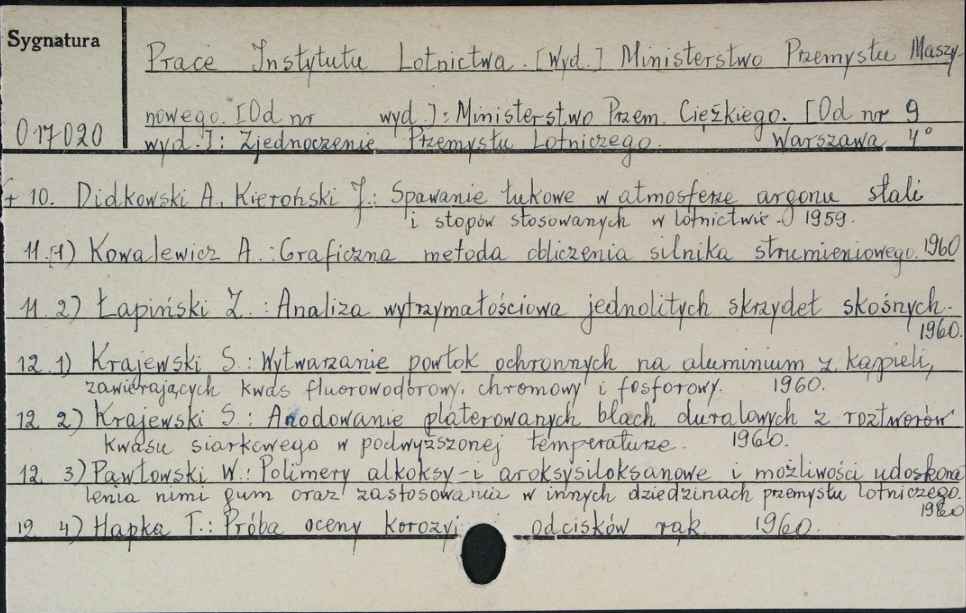 Sygnatura
Prace Instytutu Lotnictwa. [Wyd.] Ministerstwo Przemysłu Maszy-
nowego. [Od nr wyd.]: Ministerstwo Przem. Ciężkiego. [Od nr 9
017020
wyd.]: Zjednoczenie Przemysłu Lotniczego. Warszawa 4°
+ 10. Didkowski A., Kieroński J.: Spawanie łukowe w atmosferze argonu stali
i stopów stosowanych w lotnictwie. 1959.
11. 1) Kowalewicz A.: Graficzna metoda obliczenia silnika strumieniowego. 1960
11. 2) Łapiński Z.: Analiza wytrzymałościowa jednolitych skrzydeł skośnych.
1960.
12. 1) Krajewski S.: Wytwarzanie powłok ochronnych na aluminium z kąpieli,
zawierających kwas fluorowodorowy, chromowy i fosforowy. 1960.
12 2) Krajewski S.: Anodowanie platerowanych blach duralowych z roztworów
kwasu siarkowego w podwyższonej temperaturze. 1960.
12. 3) Pawłowski W.: Polimery alkoksy-i aroksysiloksanowe i możliwości udoskona
lenia nimi gum oraz zastosowania w innych dziedzinach przemysłu lotniczego.
1960
12 4) Hapka T.: Próba oceny korozyj odcisków rąk. 1960.